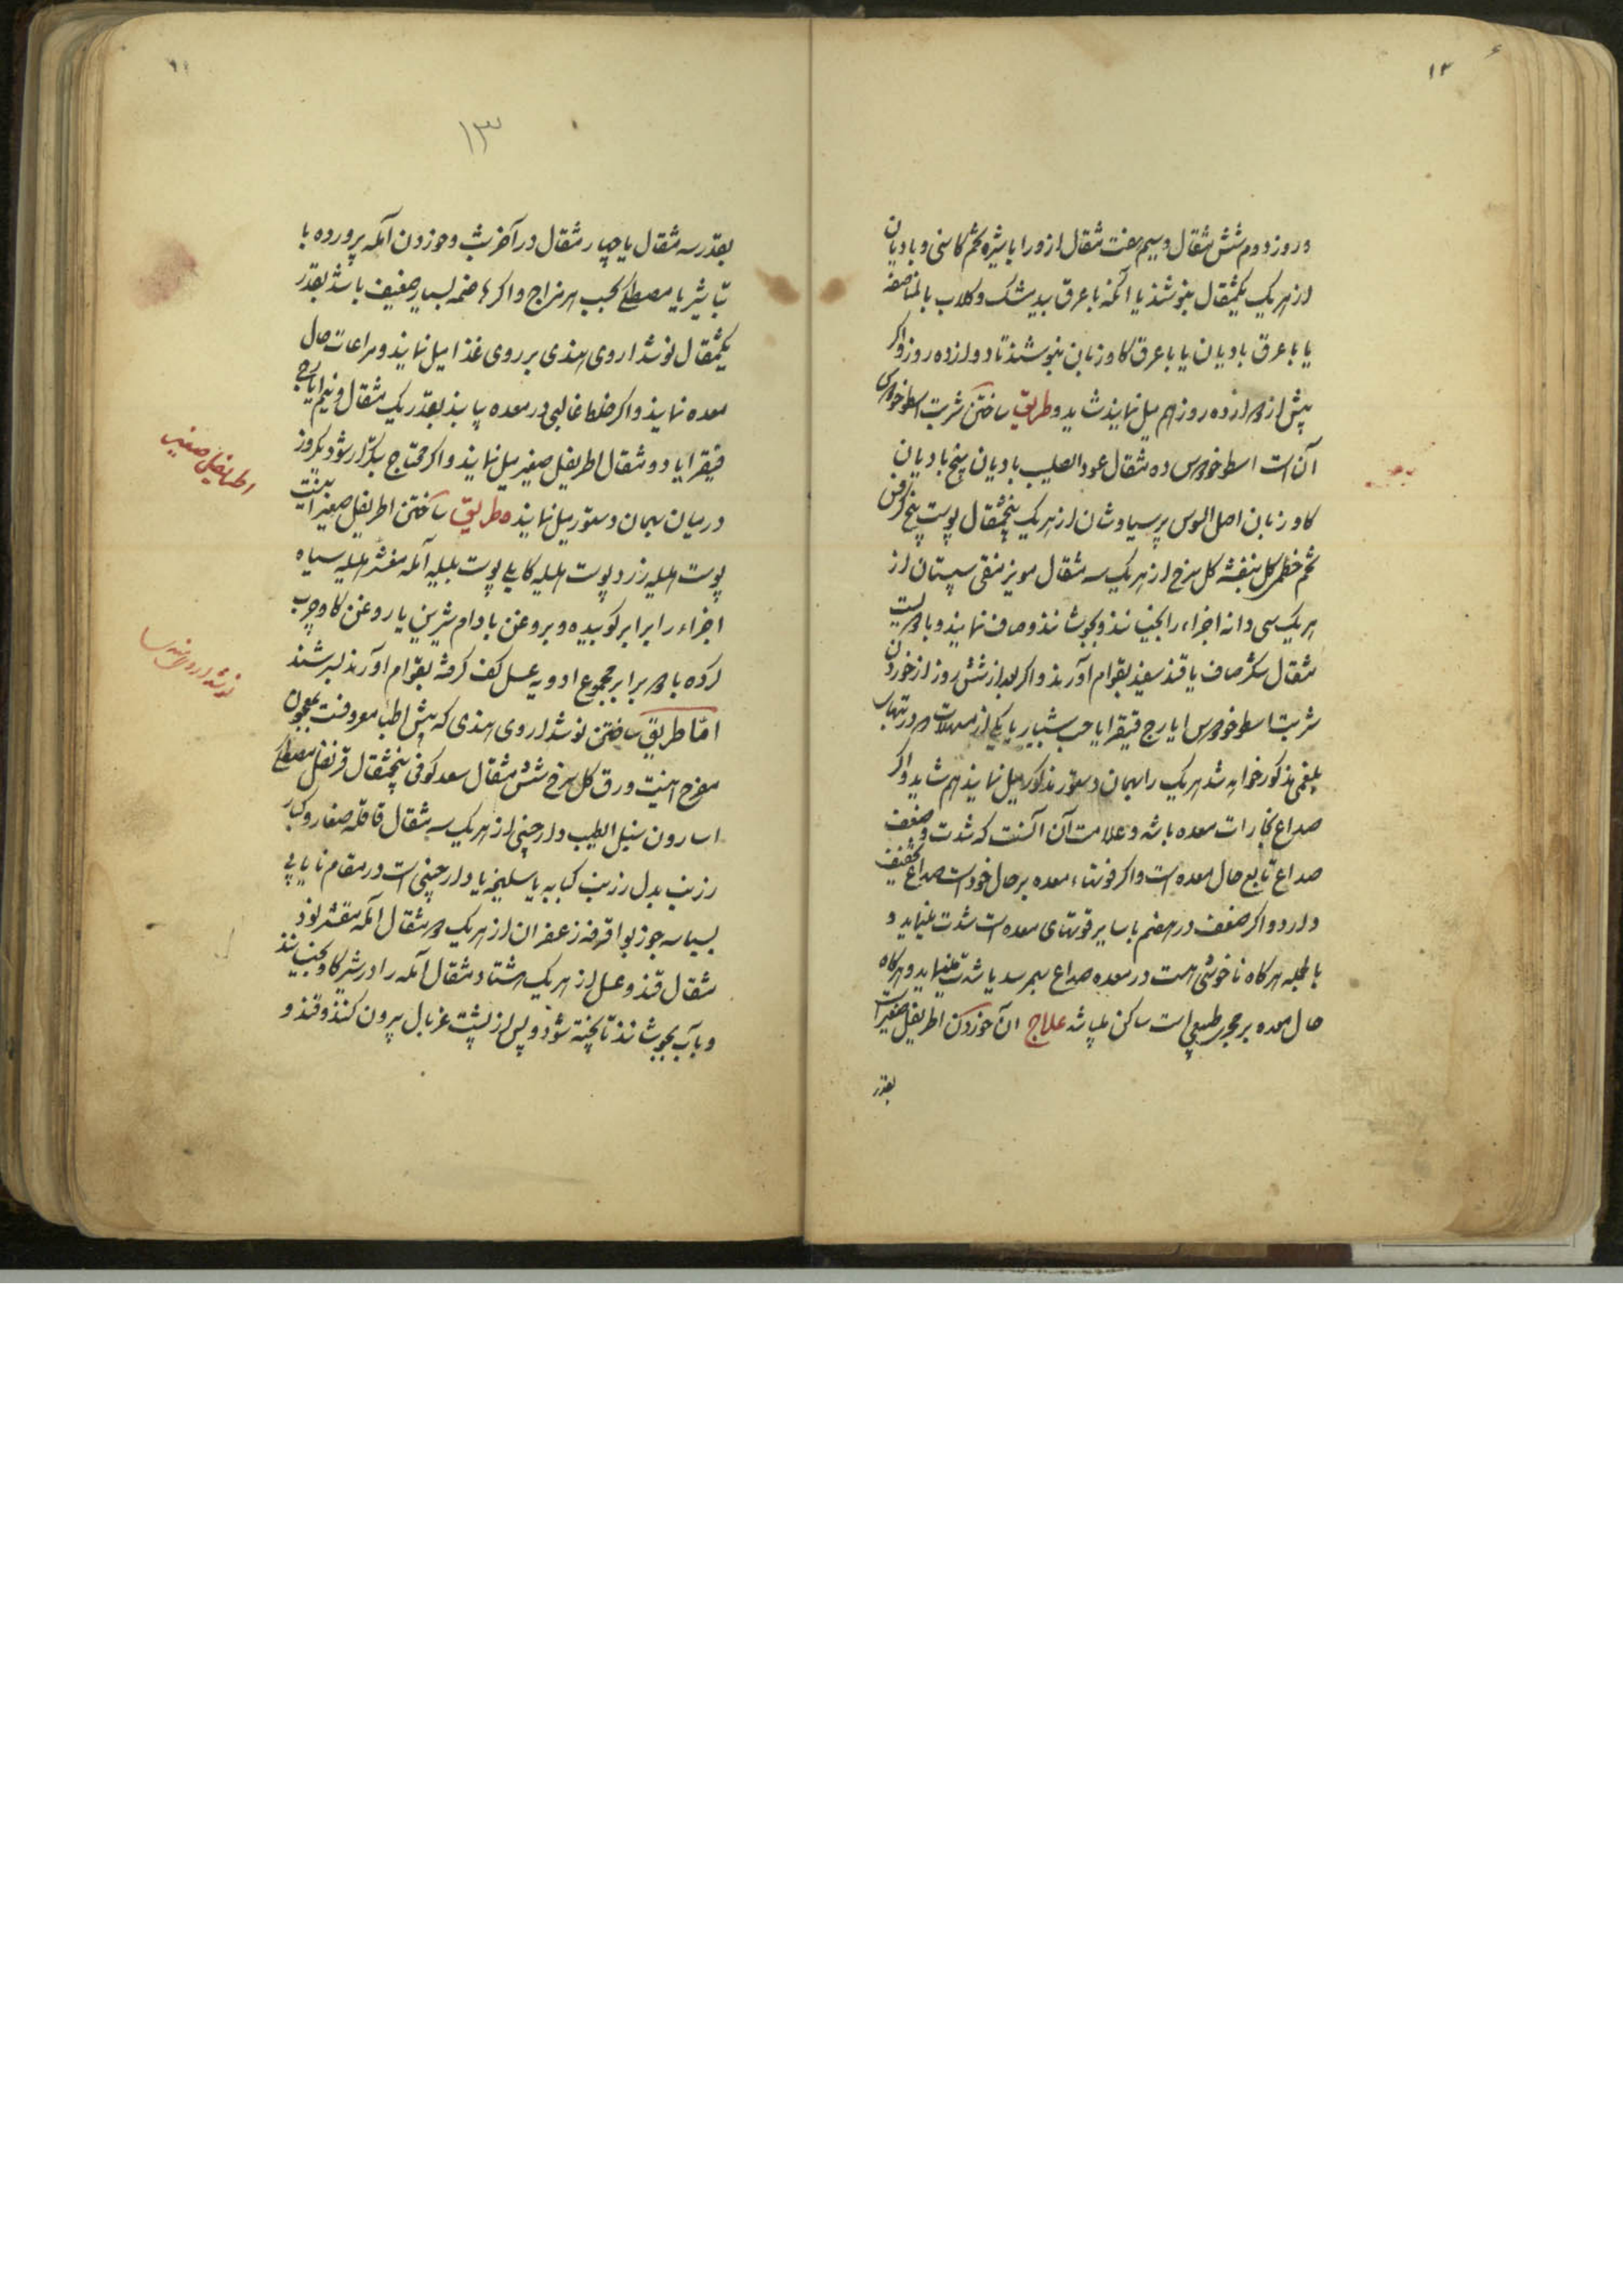 ۱۲
و روز دوم شش مثقال و سیم هفت مثقال ازو را با شیره تخم کاسنی و بادیان
از هر یک یکمثقال بنوشند یا آنکه با عرق بیدمشک و گلاب بالمناصفه
یا با عرق بادیان یا با عرق کاوزبان بنوشند تا دوازده روز و اکر
پیش از دوازده روز هم میل نمایند شاید و طریق ساختن شربت اسطوخودوس
آن است اسطوخودوس ده مثقال عود الصلیب بادیان بیخ بادیان
کاوزبان اصل السوس پرسیاوشان از هر یک پنجمثقال پوست بیخ کرفس
تخم خطمی کل بنفشه کل سرخ از هر یک سه مثقال مویز منقی سپستان از
هر یک سی دانه اجزاء را بخیسانند و بجوشانند و صاف نمایند و با دویست
مثقال شکر صاف یا قند سفید بقوام آورند و اکر بعد از شش روز از خوردن
شربت اسطوخودوس ایارج فیقرا یا حب شبیار یا یکی از مسهلات که در تبهای
بلغمی مذکور خواهد شد هر یک را بهمان دستور مذکور میل نمایند هم شاید و اکر
صداع بخارات معده باشد و علامت آن آنست که شدت و ضعف
صداع تابع حال معده است و اکر قوتهاء معده بر حال خود است صداع تخفیف
دارد و اکر ضعف در هضم یا سایر قوتهای معده است شدت مینماید و
بالجمله هرکاه ناخوشی هست در معده صداع بهمرسد یا شدت مینماید و هرکاه
حال معده بر مجری طبیعی است ساکن میباشد علاج آن خوردن اطریفل صغیر است
بقدر
۱۳
بقدر سه مثقال یا چهار مثقال در آخر شب و خوردن آمله پرورده با
تباشیر یا مصطکی بحسب هر مزاج و اکر هاضمه بسیار ضعیف باشد بقدر
یکمثقال نوشداروی هندی بر روی غذا میل نمایند و مراعات حال
معده نمایند و اکر خلط غالبی در معده یابند بقدر یک مثقال و نیم ایارج
فیقرا یا دو مثقال اطریفل صغیر میل نمایند و اکر محتاج بتکرار شود یکروز
درمیان بهمان دستور میل نمایند طریق ساختن اطریفل صغیر اینست
پوست هلیله زرد پوست هلیله کابلی پوست بلیله آمله مقشر هلیله سیاه
اجزاء را برابر کوبیده و بروغن بادام شیرین یا روغن کاو چرب
کرده با دو برابر مجموع ادویه عسل کف کرفته بقوام آورند بسرشند
اما طریق ساختن نوشداروی هندی که پیش اطبا معروفست بمعجون
مفرح اینست ورق کل سرخ شش مثقال سعد کوفی پنجمثقال قرنفل مصطکی
اسارون سنبل الطیب دارچینی از هر یک سه مثقال قاقله صغار و کبار
زرنب بدل زرنب کبابه یا سلیخه یا دارچینی است در مقام نایابی
بسباسه جوزبوا قرفه زعفران از هر یک دو مثقال آمله مقشر نود
مثقال قند و عسل از هر یک هشتاد مثقال آمله را در شیر کاو بخیسانند
و بآب بجوشانند تا پخته شود و پس از پشت غربال بیرون کنند و قند و
اطریفل صغیر